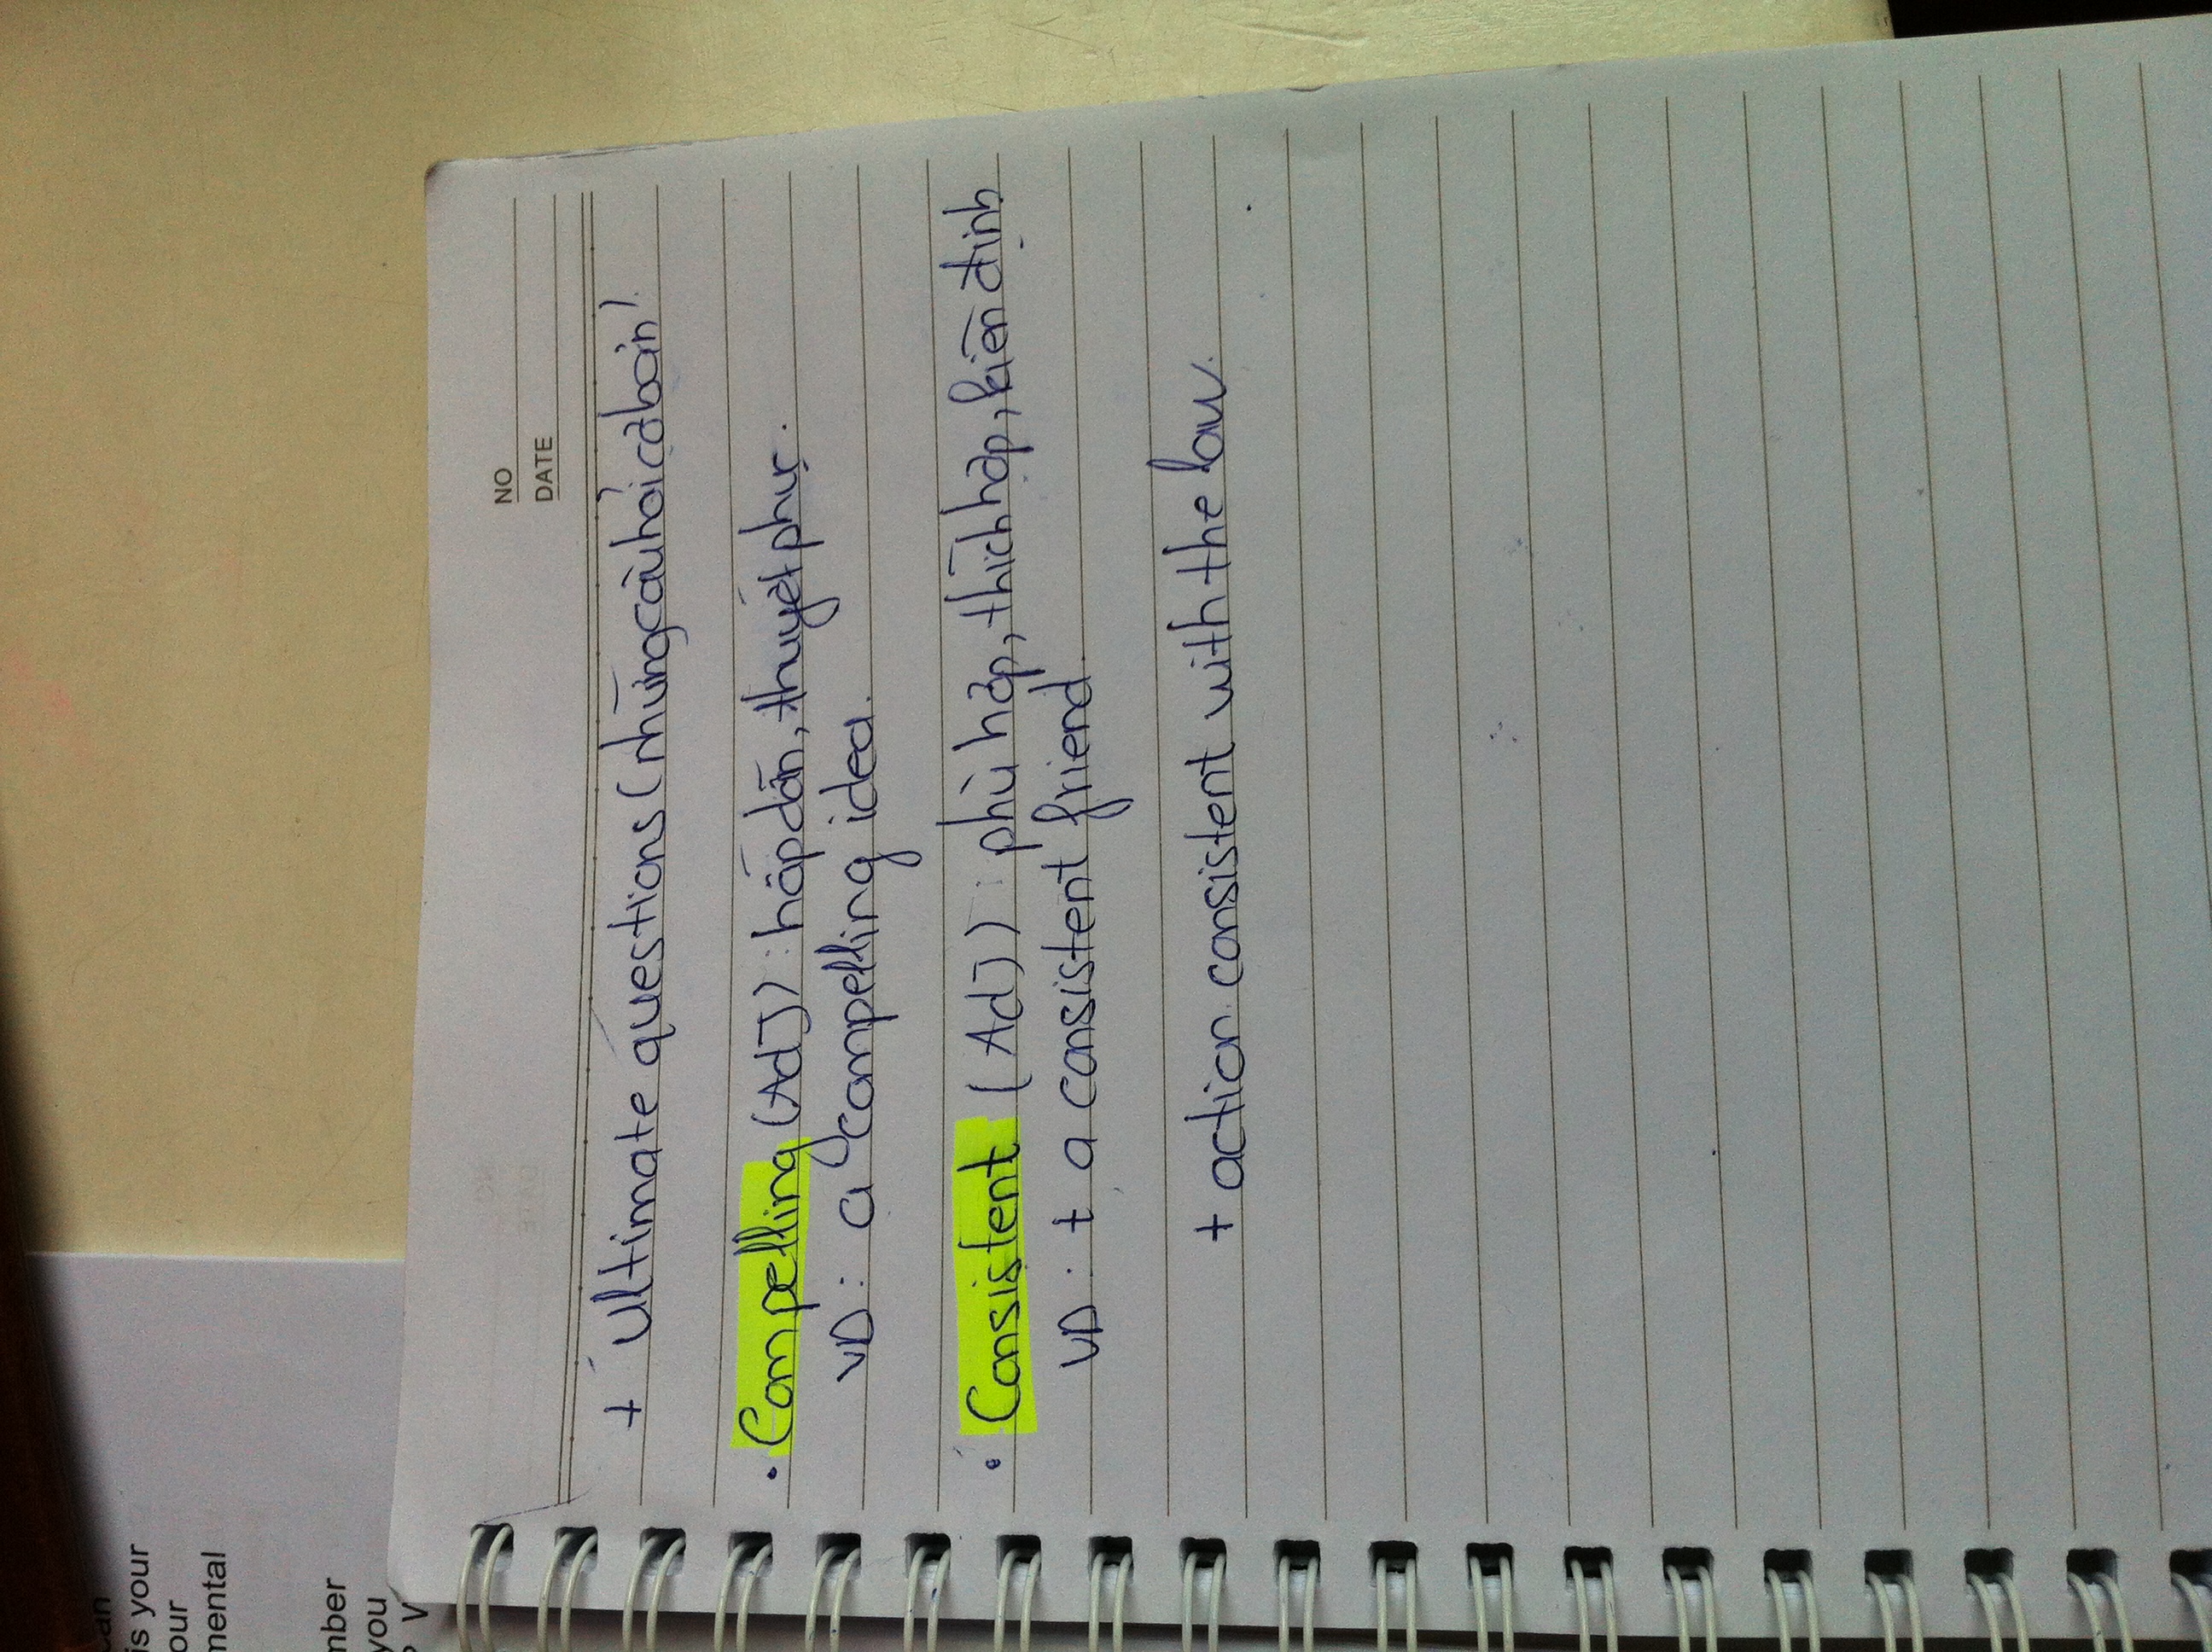 can
is your
our
mental
mber
you
? V
NO
DATE
+ Ultimate questions (những câu hỏi cơ bản)
• Compelling (Adj) : hấp dẫn, thuyết phục.
VD : a compelling idea.
• Consistent (Adj) : phù hợp, thích hợp, kiên định
VD : + a consistent friend.
+ action consistent with the law.